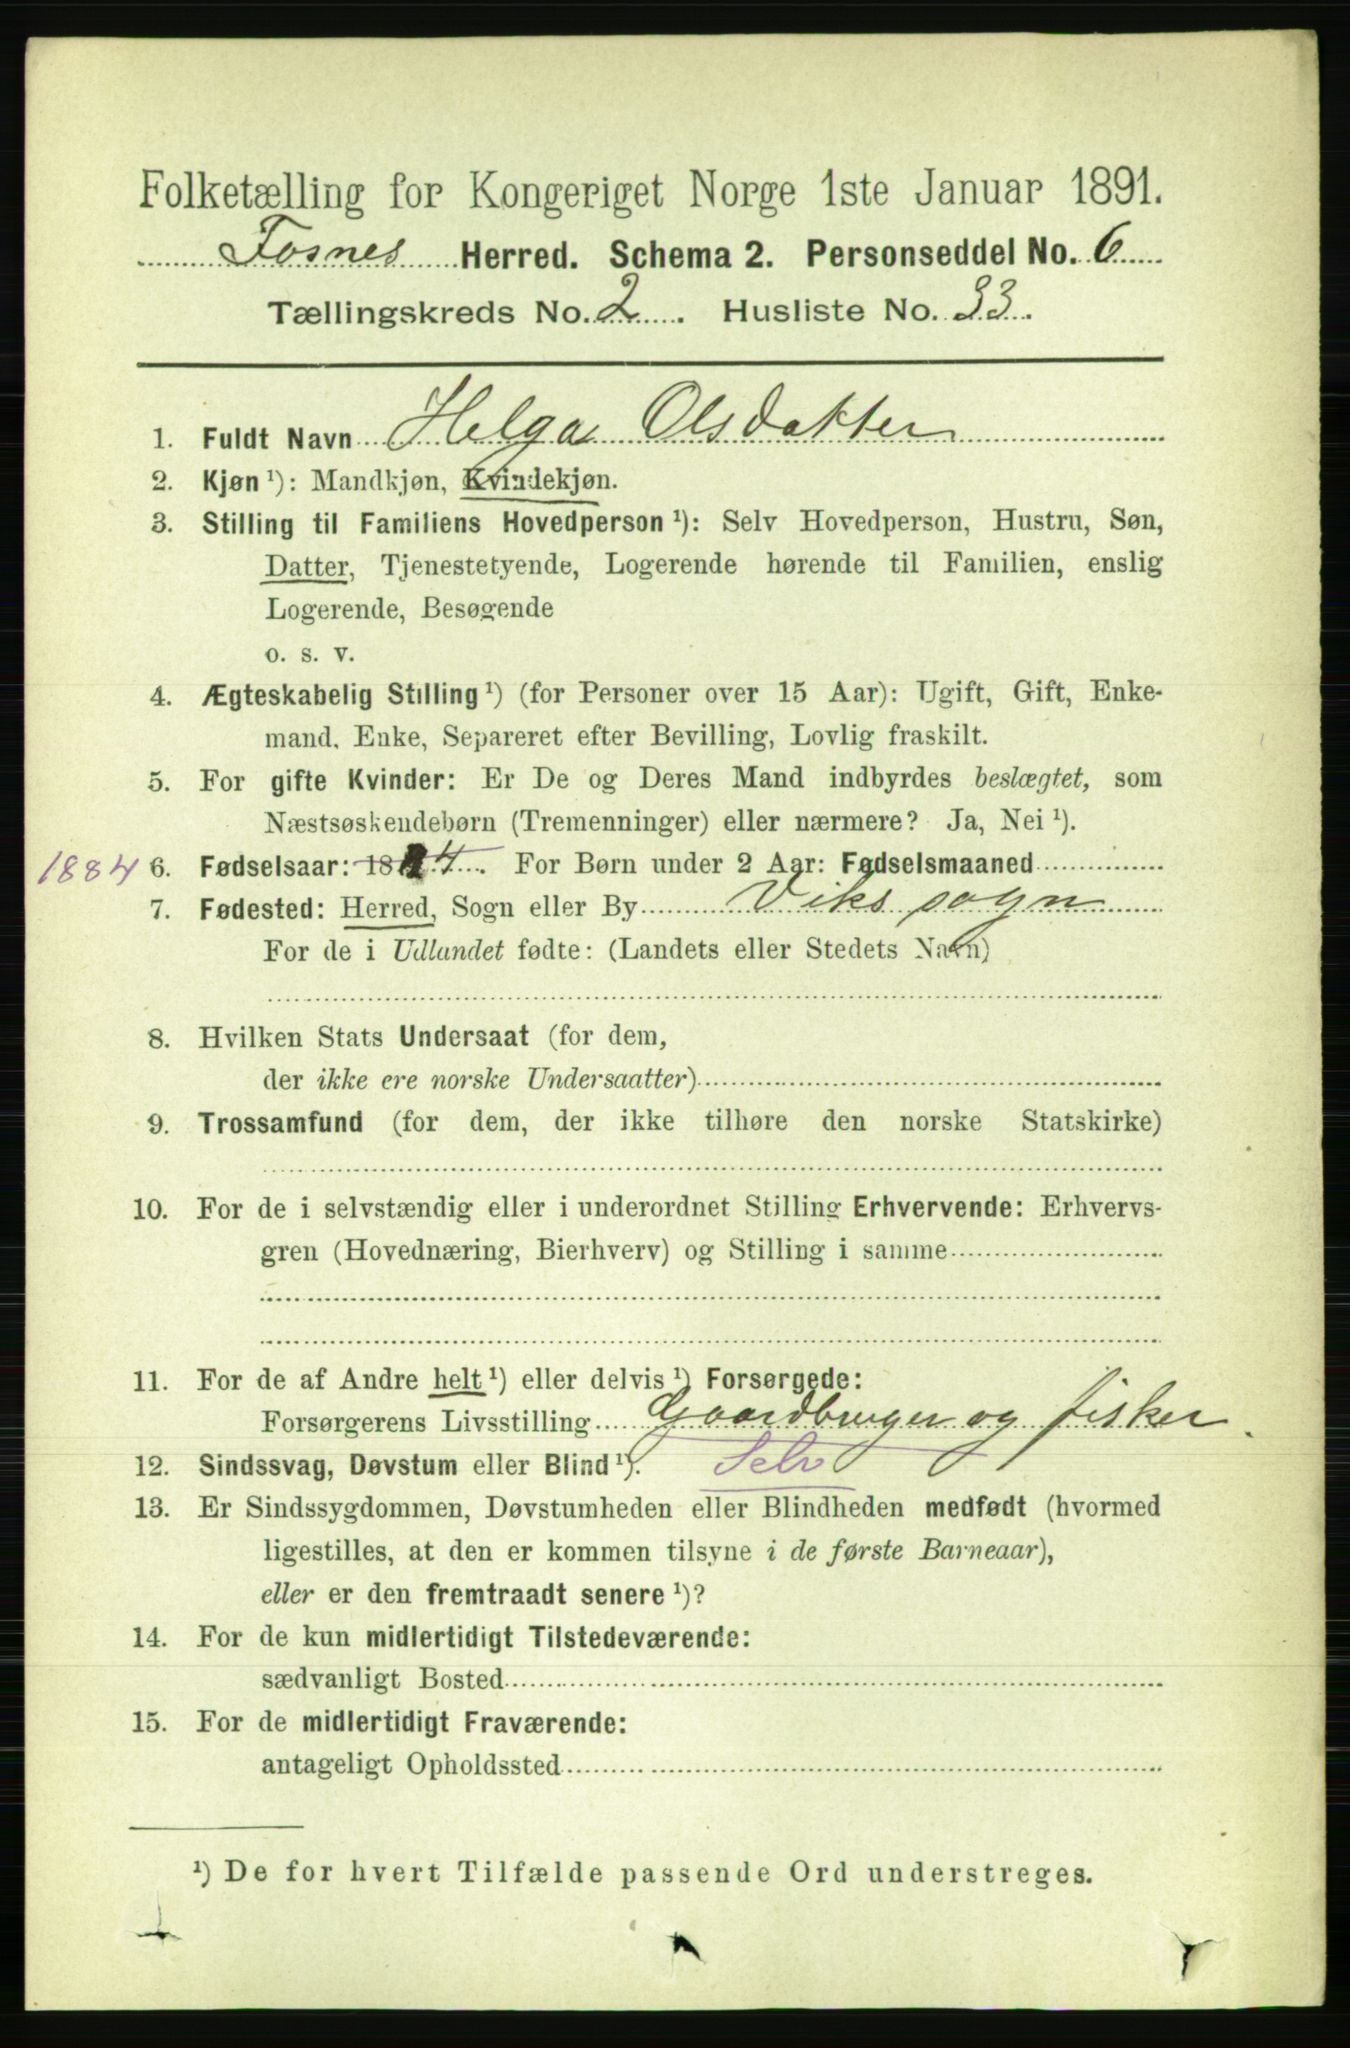 Folketælling for Kongeriget Norge 1ste Januar 1891.
Fosnes Herred. Schema 2. Personseddel No. 6
Tællingskreds No. 2. Husliste No. 33.
1. Fuldt Navn Helga Olsdatter
2. Kjøn ¹): Mandkjøn, Kvindekjøn.
3. Stilling til Familiens Hovedperson ¹): Selv Hovedperson, Hustru, Søn,
Datter, Tjenestetyende, Logerende hørende til Familien, enslig
Logerende, Besøgende
o. s. v.
4. Ægteskabelig Stilling ¹) (for Personer over 15 Aar): Ugift, Gift, Enke-
mand, Enke, Separeret efter Bevilling, Lovlig fraskilt.
5. For gifte Kvinder: Er De og Deres Mand indbyrdes beslægtet, som
Næstsøskendebørn (Tremenninger) eller nærmere? Ja, Nei ¹).
1884 6. Fødselsaar: 18 4. For Børn under 2 Aar: Fødselsmaaned
7. Fødested: Herred, Sogn eller By Viks sogn
For de i Udlandet fødte: (Landets eller Stedets Navn)
8. Hvilken Stats Undersaat (for dem,
der ikke ere norske Undersaatter)
9. Trossamfund (for dem, der ikke tilhøre den norske Statskirke)
10. For de i selvstændig eller i underordnet Stilling Erhvervende: Erhvervs-
gren (Hovednæring, Bierhverv) og Stilling i samme
11. For de af Andre helt ¹) eller delvis ¹) Forsørgede:
Forsørgerens Livsstilling Gaardbruger og fisker
12. Sindssvag, Døvstum eller Blind ¹). Selv
13. Er Sindssygdommen, Døvstumheden eller Blindheden medfødt (hvormed
ligestilles, at den er kommen tilsyne i de første Barneaar),
eller er den fremtraadt senere ¹)?
14. For de kun midlertidigt Tilstedeværende:
sædvanligt Bosted
15. For de midlertidigt Fraværende:
antageligt Opholdssted
¹) De for hvert Tilfælde passende Ord understreges.